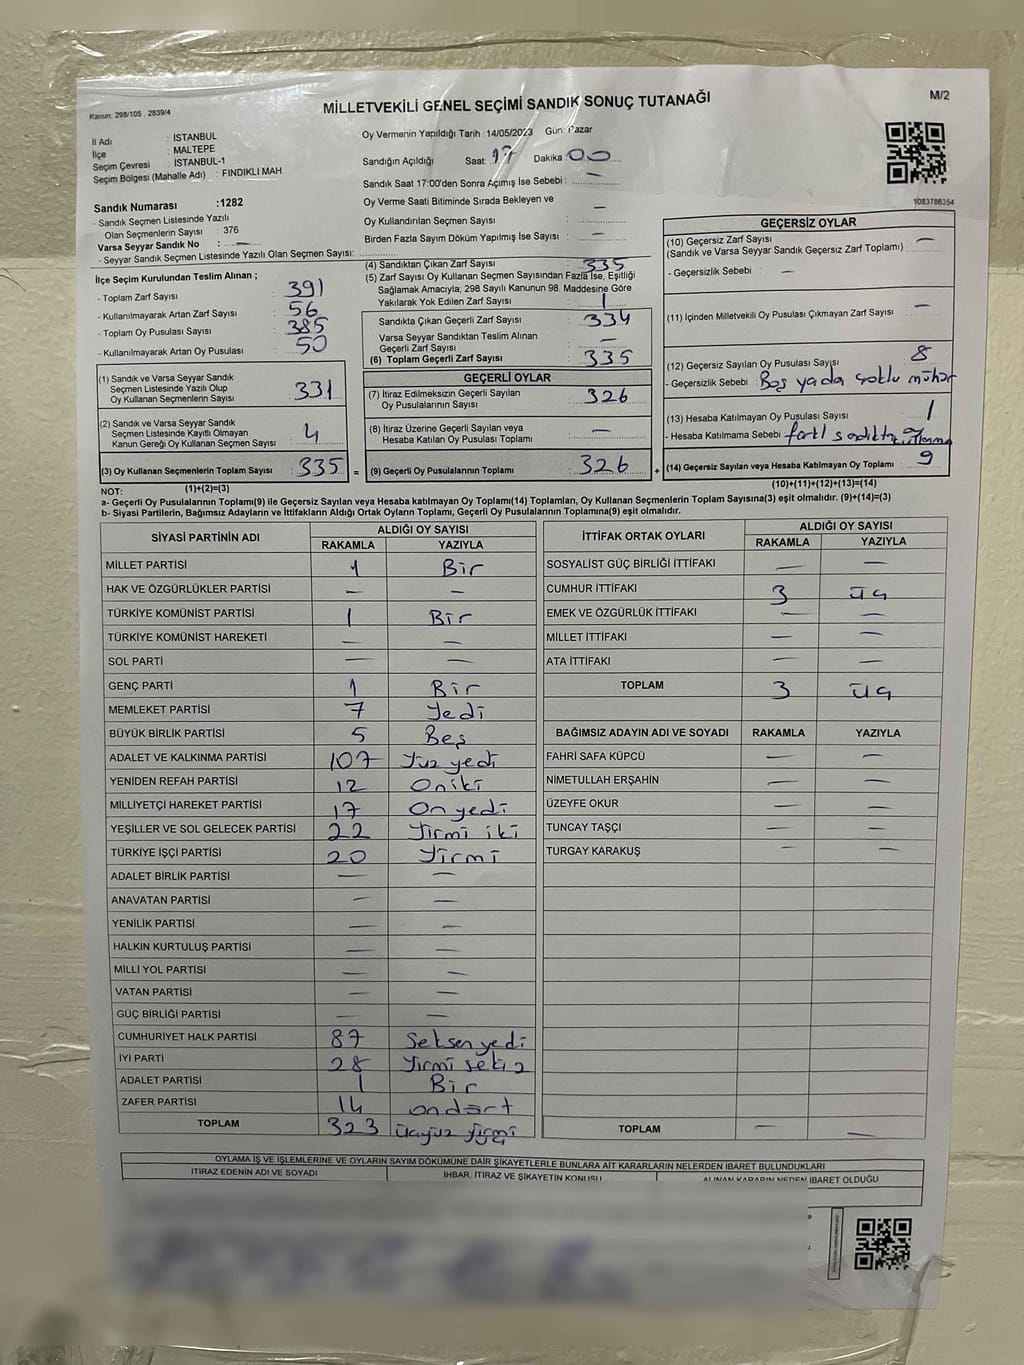 MİLLETVEKİLİ GENEL SEÇİMİ SANDIK SONUÇ TUTANAĞI
M/2
Kanun: 298/105 , 2839/4
İl Adı : İSTANBUL
İlçe : MALTEPE
Seçim Çevresi : İSTANBUL-1
Seçim Bölgesi (Mahalle Adı) : FINDIKLI MAH.
Oy Vermenin Yapıldığı Tarih :14/05/2023 Gün: Pazar
Sandığın Açıldığı Saat: 17 Dakika 00
Sandık Saat 17:00'den Sonra Açımış İse Sebebi : —
Oy Verme Saati Bitiminde Sırada Bekleyen ve
Oy Kullandırılan Seçmen Sayısı : —
Birden Fazla Sayım Döküm Yapılmış İse Sayısı : —
1083786354
Sandık Numarası :1282
- Sandık Seçmen Listesinde Yazılı
Olan Seçmenlerin Sayısı : 376
Varsa Seyyar Sandık No : —
- Seyyar Sandık Seçmen Listesinde Yazılı Olan Seçmen Sayısı:
İlçe Seçim Kurulundan Teslim Alınan ;
- Toplam Zarf Sayısı : 391
- Kullanılmayarak Artan Zarf Sayısı : 56
- Toplam Oy Pusulası Sayısı : 385
- Kullanılmayarak Artan Oy Pusulası : 50
(1) Sandık ve Varsa Seyyar Sandık
Seçmen Listesinde Yazılı Olup
Oy Kullanan Seçmenlerin Sayısı : 331
(2) Sandık ve Varsa Seyyar Sandık
Seçmen Listesinde Kayıtlı Olmayan
Kanun Gereği Oy Kullanan Seçmen Sayısı : 4
(3) Oy Kullanan Seçmenlerin Toplam Sayısı : 335 =
(1)+(2)=(3)
(4) Sandıktan Çıkan Zarf Sayısı : 335
(5) Zarf Sayısı Oy Kullanan Seçmen Sayısından Fazla İse, Eşitliği
Sağlamak Amacıyla; 298 Sayılı Kanunun 98. Maddesine Göre
Yakılarak Yok Edilen Zarf Sayısı : 1
Sandıkta Çıkan Geçerli Zarf Sayısı : 334
Varsa Seyyar Sandıktan Teslim Alınan
Geçerli Zarf Sayısı : —
(6) Toplam Geçerli Zarf Sayısı : 335
GEÇERLİ OYLAR
(7) İtiraz Edilmeksizin Geçerli Sayılan
Oy Pusulalarının Sayısı : 326
(8) İtiraz Üzerine Geçerli Sayılan veya
Hesaba Katılan Oy Pusulası Toplamı : —
(9) Geçerli Oy Pusulalarının Toplamı : 326 +
GEÇERSİZ OYLAR
(10) Geçersiz Zarf Sayısı : —
(Sandık ve Varsa Seyyar Sandık Geçersiz Zarf Toplamı)
- Geçersizlik Sebebi : —
(11) İçinden Milletvekili Oy Pusulası Çıkmayan Zarf Sayısı : —
(12) Geçersiz Sayılan Oy Pusulası Sayısı : 8
- Geçersizlik Sebebi : Boş yada çoklu mühür
(13) Hesaba Katılmayan Oy Pusulası Sayısı : 1
- Hesaba Katılmama Sebebi : farklı sandıkta
(14) Geçersiz Sayılan veya Hesaba Katılmayan Oy Toplamı : 9
(10)+(11)+(12)+(13)=(14)
NOT:
a- Geçerli Oy Pusulalarının Toplamı(9) ile Geçersiz Sayılan veya Hesaba katılmayan Oy Toplamı(14) Toplamları, Oy Kullanan Seçmenlerin Toplam Sayısına(3) eşit olmalıdır. (9)+(14)=(3)
b- Siyasi Partilerin, Bağımsız Adayların ve İttifakların Aldığı Ortak Oyların Toplamı, Geçerli Oy Pusulalarının Toplamına(9) eşit olmalıdır.
SİYASİ PARTİNİN ADI ALDIĞI OY SAYISI
RAKAMLA YAZIYLA
MİLLET PARTİSİ 1 Bir
HAK VE ÖZGÜRLÜKLER PARTİSİ — —
TÜRKİYE KOMÜNİST PARTİSİ 1 Bir
TÜRKİYE KOMÜNİST HAREKETİ — —
SOL PARTİ — —
GENÇ PARTİ 1 Bir
MEMLEKET PARTİSİ 7 Yedi
BÜYÜK BİRLİK PARTİSİ 5 Beş
ADALET VE KALKINMA PARTİSİ 107 Yüz yedi
YENİDEN REFAH PARTİSİ 12 Oniki
MİLLİYETÇİ HAREKET PARTİSİ 17 Onyedi
YEŞİLLER VE SOL GELECEK PARTİSİ 22 Yirmi iki
TÜRKİYE İŞÇİ PARTİSİ 20 Yirmi
ADALET BİRLİK PARTİSİ — —
ANAVATAN PARTİSİ — —
YENİLİK PARTİSİ — —
HALKIN KURTULUŞ PARTİSİ — —
MİLLİ YOL PARTİSİ — —
VATAN PARTİSİ — —
GÜÇ BİRLİĞİ PARTİSİ — —
CUMHURİYET HALK PARTİSİ 87 Seksen yedi
İYİ PARTİ 28 Yirmi sekiz
ADALET PARTİSİ 1 Bir
ZAFER PARTİSİ 14 ondört
TOPLAM 323 üçyüz yirmi üç
İTTİFAK ORTAK OYLARI ALDIĞI OY SAYISI
RAKAMLA YAZIYLA
SOSYALİST GÜÇ BİRLİĞİ İTTİFAKI — —
CUMHUR İTTİFAKI 3 üç
EMEK VE ÖZGÜRLÜK İTTİFAKI — —
MİLLET İTTİFAKI — —
ATA İTTİFAKI — —
TOPLAM 3 üç
BAĞIMSIZ ADAYIN ADI VE SOYADI RAKAMLA YAZIYLA
FAHRİ SAFA KÜPCÜ — —
NİMETULLAH ERŞAHİN — —
ÜZEYFE OKUR — —
TUNCAY TAŞÇI — —
TURGAY KARAKUŞ — —
TOPLAM — —
OYLAMA İŞ VE İŞLEMLERİNE VE OYLARIN SAYIM DÖKÜMÜNE DAİR ŞİKAYETLERLE BUNLARA AİT KARARLARIN NELERDEN İBARET BULUNDUKLARI
İTİRAZ EDENİN ADI VE SOYADI İHBAR, İTİRAZ VE ŞİKAYETİN KONUSU ALINAN KARARIN NEDEN İBARET OLDUĞU